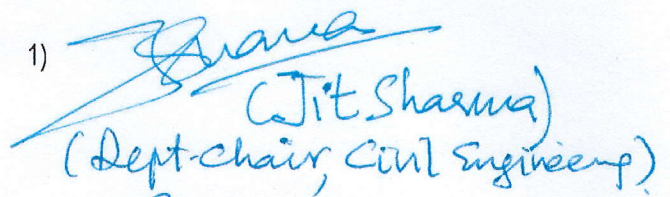 1)
(Jit Sharma)
(Dept-Chair, Civil Engineering)